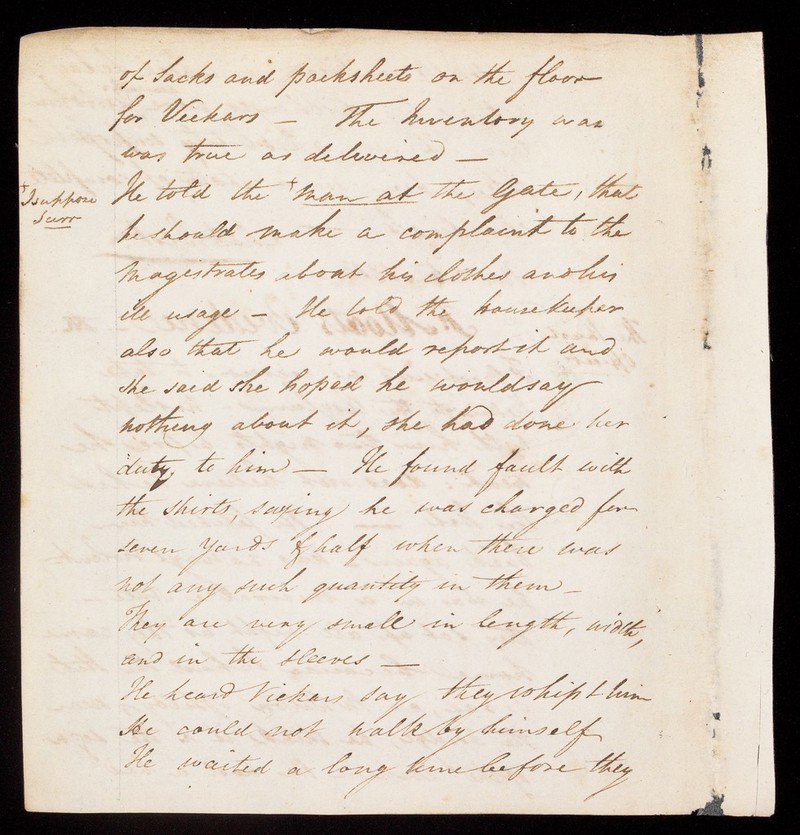 of Sacks and packsheets on the floor
for Vickars — The Inventory was
was true as delivered —
He told the + man at the Gate, that
+ I suppose
Surr
he should make a complaint to the
Magistrates about his clothes and his
ill usage — He told the housekeeper
also that he would report it and
she said she hoped he would say
nothing about it, she had done her
duty, to him — He found fault with
the Shirts, saying he was charged for
seven yards & half when there was
not any such quantity in them —
They are very small in length, width,
and in the sleeves —
He heard Vickars say they whipt him
He could not walk by himself
He waited a long time before they